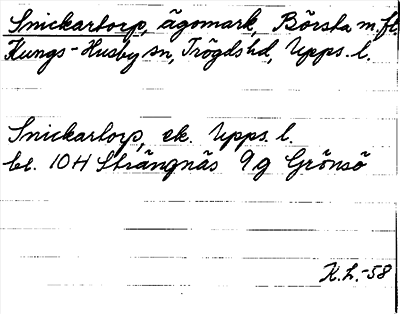 Snickartorp, ägomark, Börsta m.fl.
Kungs-Husby sn, Trögds hd, Upps. l.
Snickartorp, ek. Upps. l.
bl. 10H Strängnäs 9g Grönsö
K.L.-58